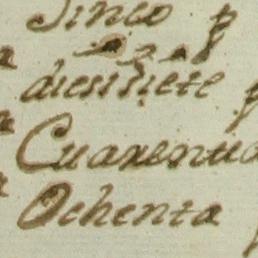 Sinco p
diesisiete p
Cuarenta
Ochenta